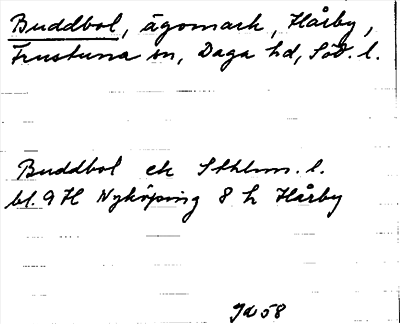 Buddbol, ägomark, Hårby,
Frustuna sn, Daga hd, Söd. l.
Buddbol ek Sthlms. l.
bl. 9 H Nyköping 8 h Hårby
58